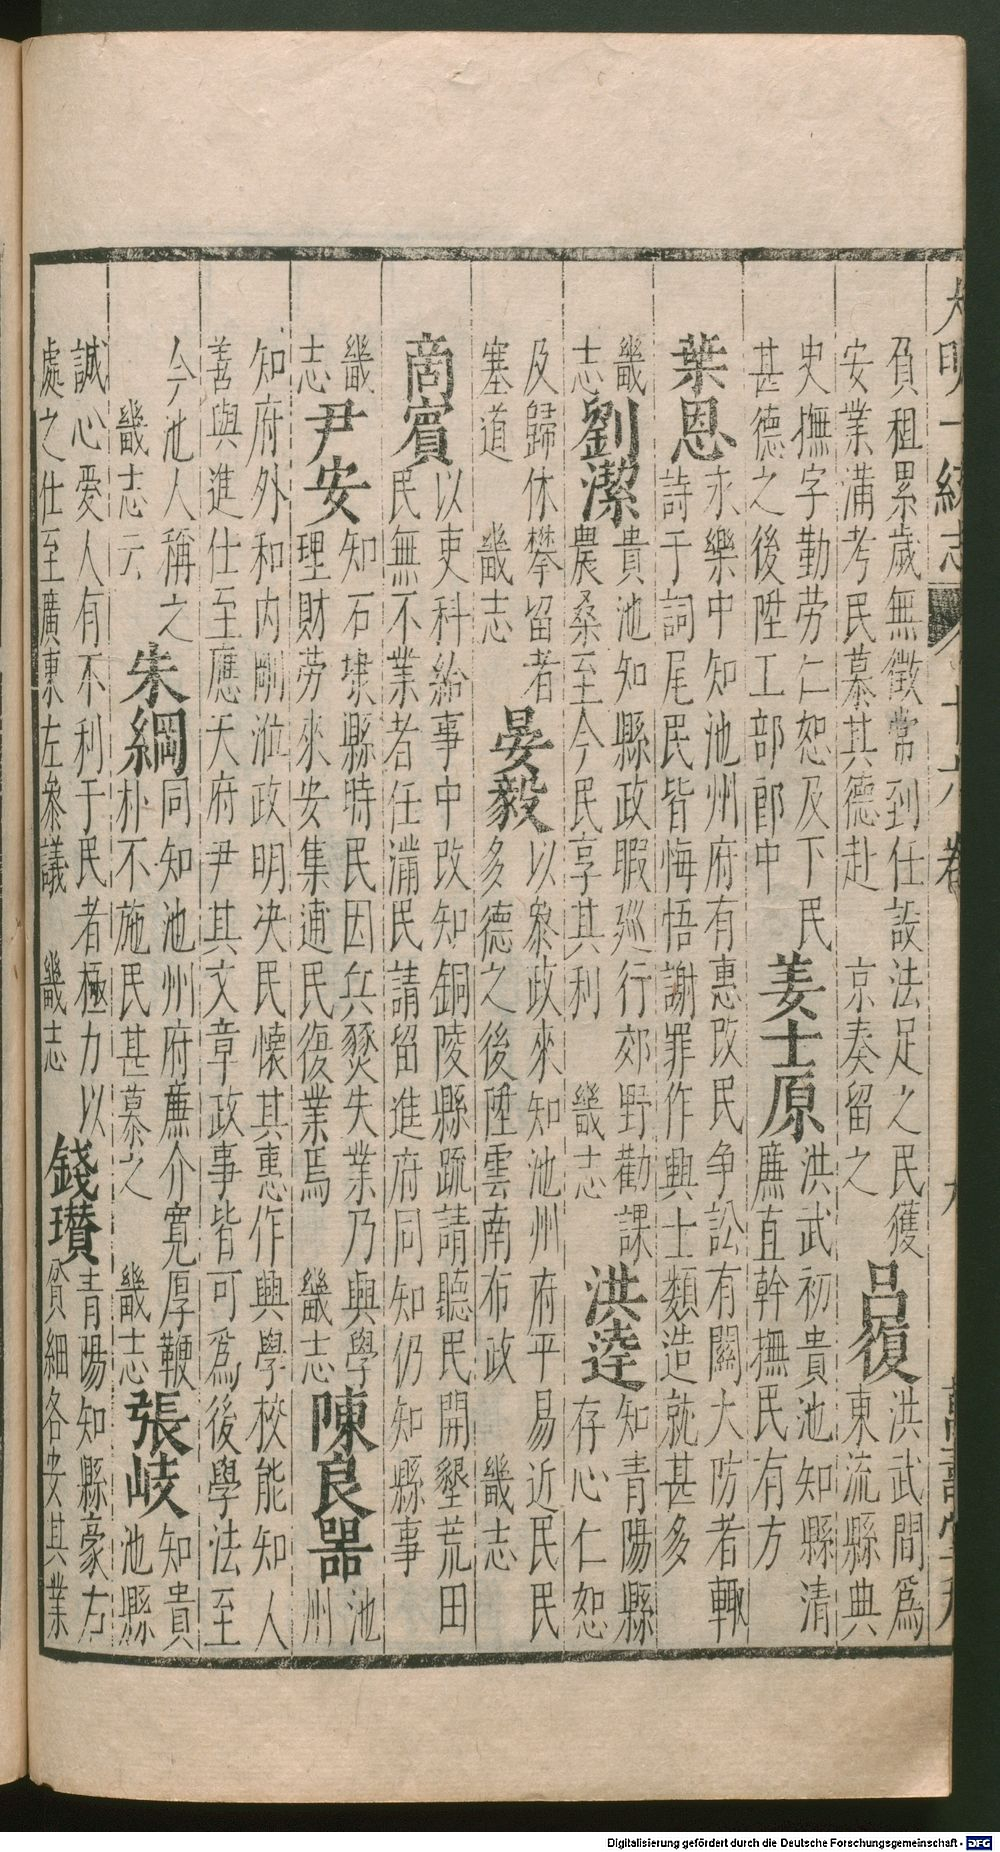 大明一統志 卷十六 九 萬壽堂刊
負租累歲無徵常到任設法足之民獲
安業滿考民慕其德赴 京奏留之
吕復
洪武間爲
東流縣典
史撫字勤劳仁恕及下民
甚德之後陞工部郎中
姜士原
洪武初貴池知縣清
廉直幹撫民有方
葉恩
永樂中知池州府有惠政民争訟有關大防者輙
詩于詞尾民皆悔悟謝罪作興士類造就甚多
畿
志
劉潔
貴池知縣政暇廵行郊野勸課
農桑至今民享其利 畿志
洪逵
知青陽縣
存心仁恕
及歸休攀留者
塞道 畿志
晏毅
以叅政來知池州府平易近民民
多德之後陞雲南布政 畿志
商賓
以吏科給事中改知銅陵縣䟽請聽民開墾荒田
民無不業者任滿民請留進府同知仍知縣事
畿
志
尹安
知石埭縣時民因兵燹失業乃興學
理財劳來安集逋民復業焉 畿志
陳良器
池
州
知府外和内剛涖政明决民懐其惠作興學校能知人
善與進仕至應天府尹其文章政事皆可爲後學法至
今池人稱之
畿志云
朱綱
同知池州府亷介寛厚鞭
朴不施民甚慕之 畿志
張岐
知貴
池縣
誠心愛人有不利于民者極力以
處之仕至廣東左叅議 畿志
錢瓚
青陽知縣豪右
貧細各安其業
Digitalisierung gefördert durch die Deutsche Forschungsgemeinschaft - DFG